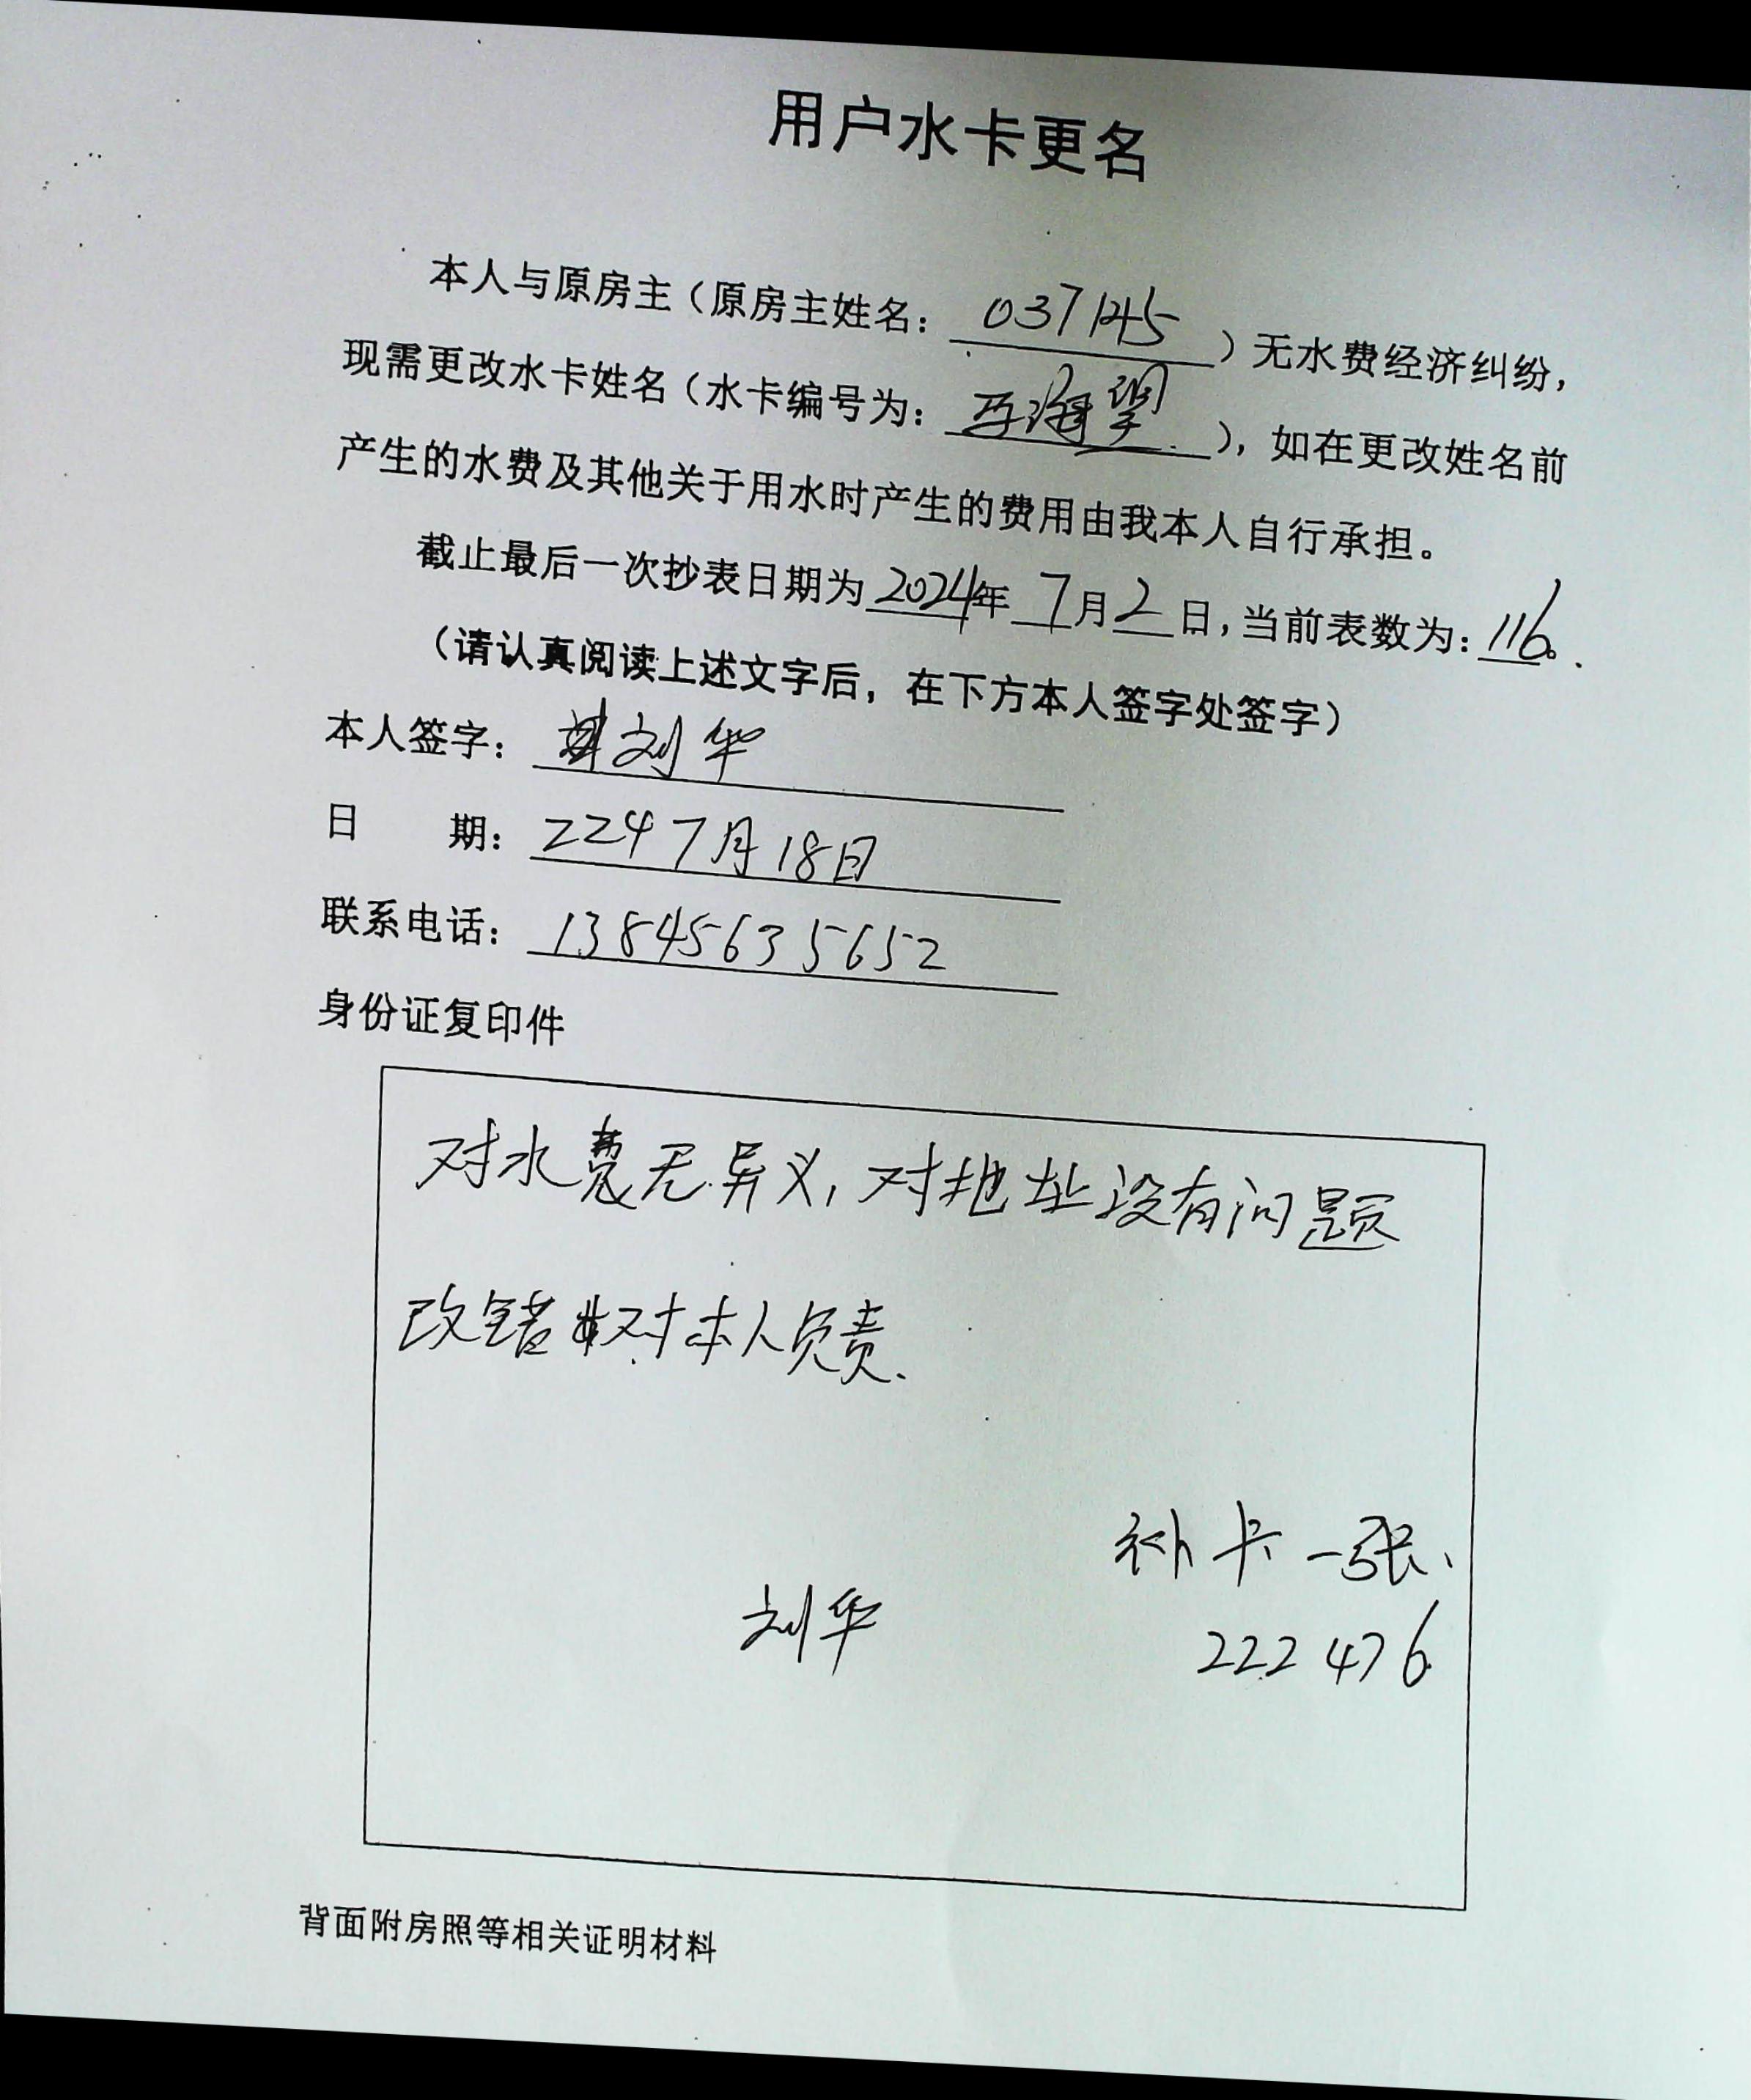 用户水卡更名
本人与原房主（原房主姓名：037145）无水费经济纠纷，
现需更改水卡姓名（水卡编号为：），如在更改姓名前
产生的水费及其他关于用水时产生的费用由我本人自行承担。
截止最后一次抄表日期为2024年7月2日，当前表数为：116。
（请认真阅读上述文字后，在下方本人签字处签字）
本人签字：刘华
日 期：224 7月18日
联系电话：13845635652
身份证复印件
对水费无异义，对地址没有问题
改错对本人负责.
补卡一张、
刘华
222476
背面附房照等相关证明材料